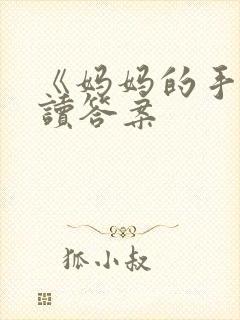 《妈妈的手
讀答案
狐小叔